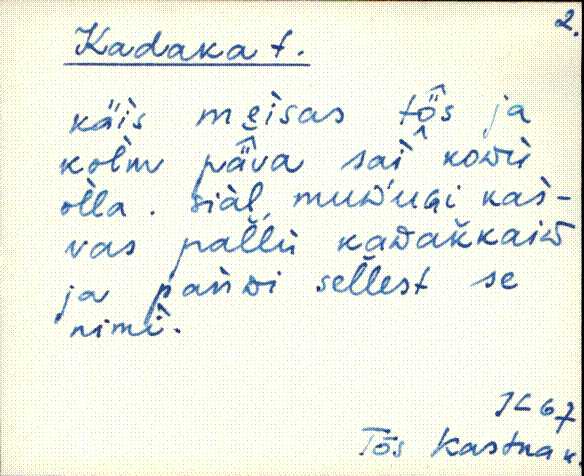 2.
Kadaka t.
käis meisas tö̂s ja
kolm pä̂va sai kodu
olla. siàl muD'ugi kaś-
vas paĺĺu kaDakkaiD
ja pańDi sellest se
nimi.
JL 67
Tõs Kastna k.